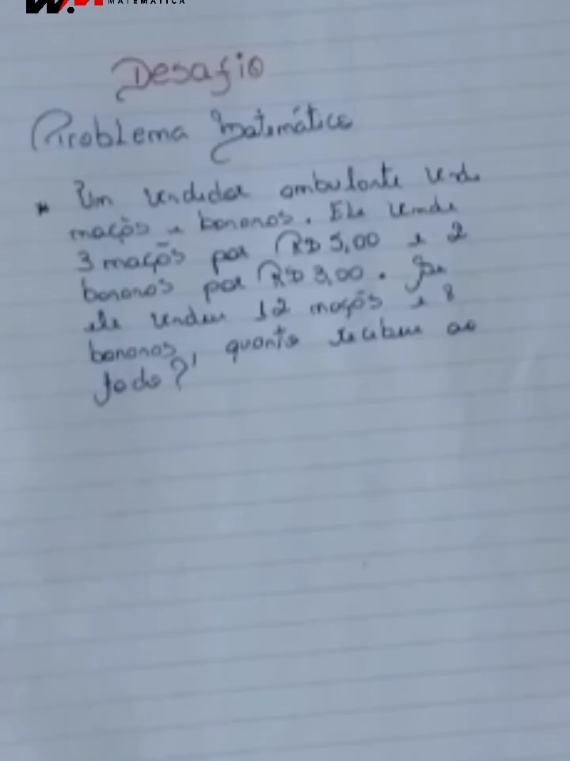 MATEMÁTICA
Desafio
Problema Matemático
* Um vendedor ambulante vende
maçãs e bananas. Ele vende
3 maçãs por R$ 5,00 e 2
bananas por R$ 3,00. Se
ele vendeu 12 maçãs e 8
bananas, quanto recebeu ao
todo?